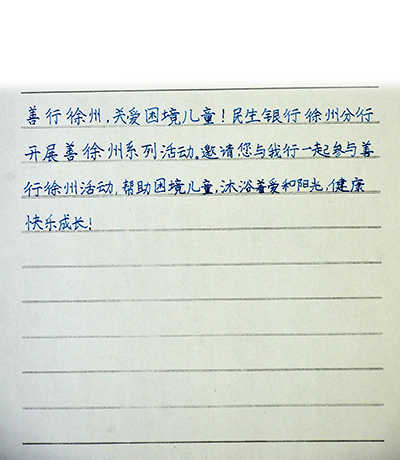 善行徐州，关爱困境儿童！民生银行徐州分行
开展善徐州系列活动。邀请您与我行一起参与善
行徐州活动，帮助困境儿童，沐浴着爱和阳光，健康
快乐成长！